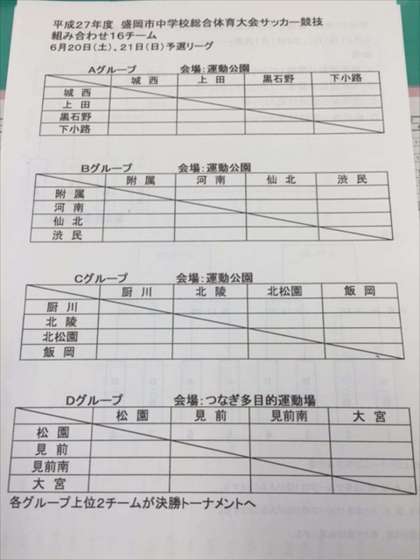 平成27年度 盛岡市中学校総合体育大会サッカー競技
組み合わせ16チーム
6月20日(土),21日(日)予選リーグ
Aグループ 会場:運動公園
城西 上田 黒石野 下小路
城西
上田
黒石野
下小路
Bグループ 会場:運動公園
附属 河南 仙北 渋民
附属
河南
仙北
渋民
Cグループ 会場:運動公園
厨川 北陵 北松園 飯岡
厨川
北陵
北松園
飯岡
Dグループ 会場:つなぎ多目的運動場
松園 見前 見前南 大宮
松園
見前
見前南
大宮
各グループ上位2チームが決勝トーナメントへ